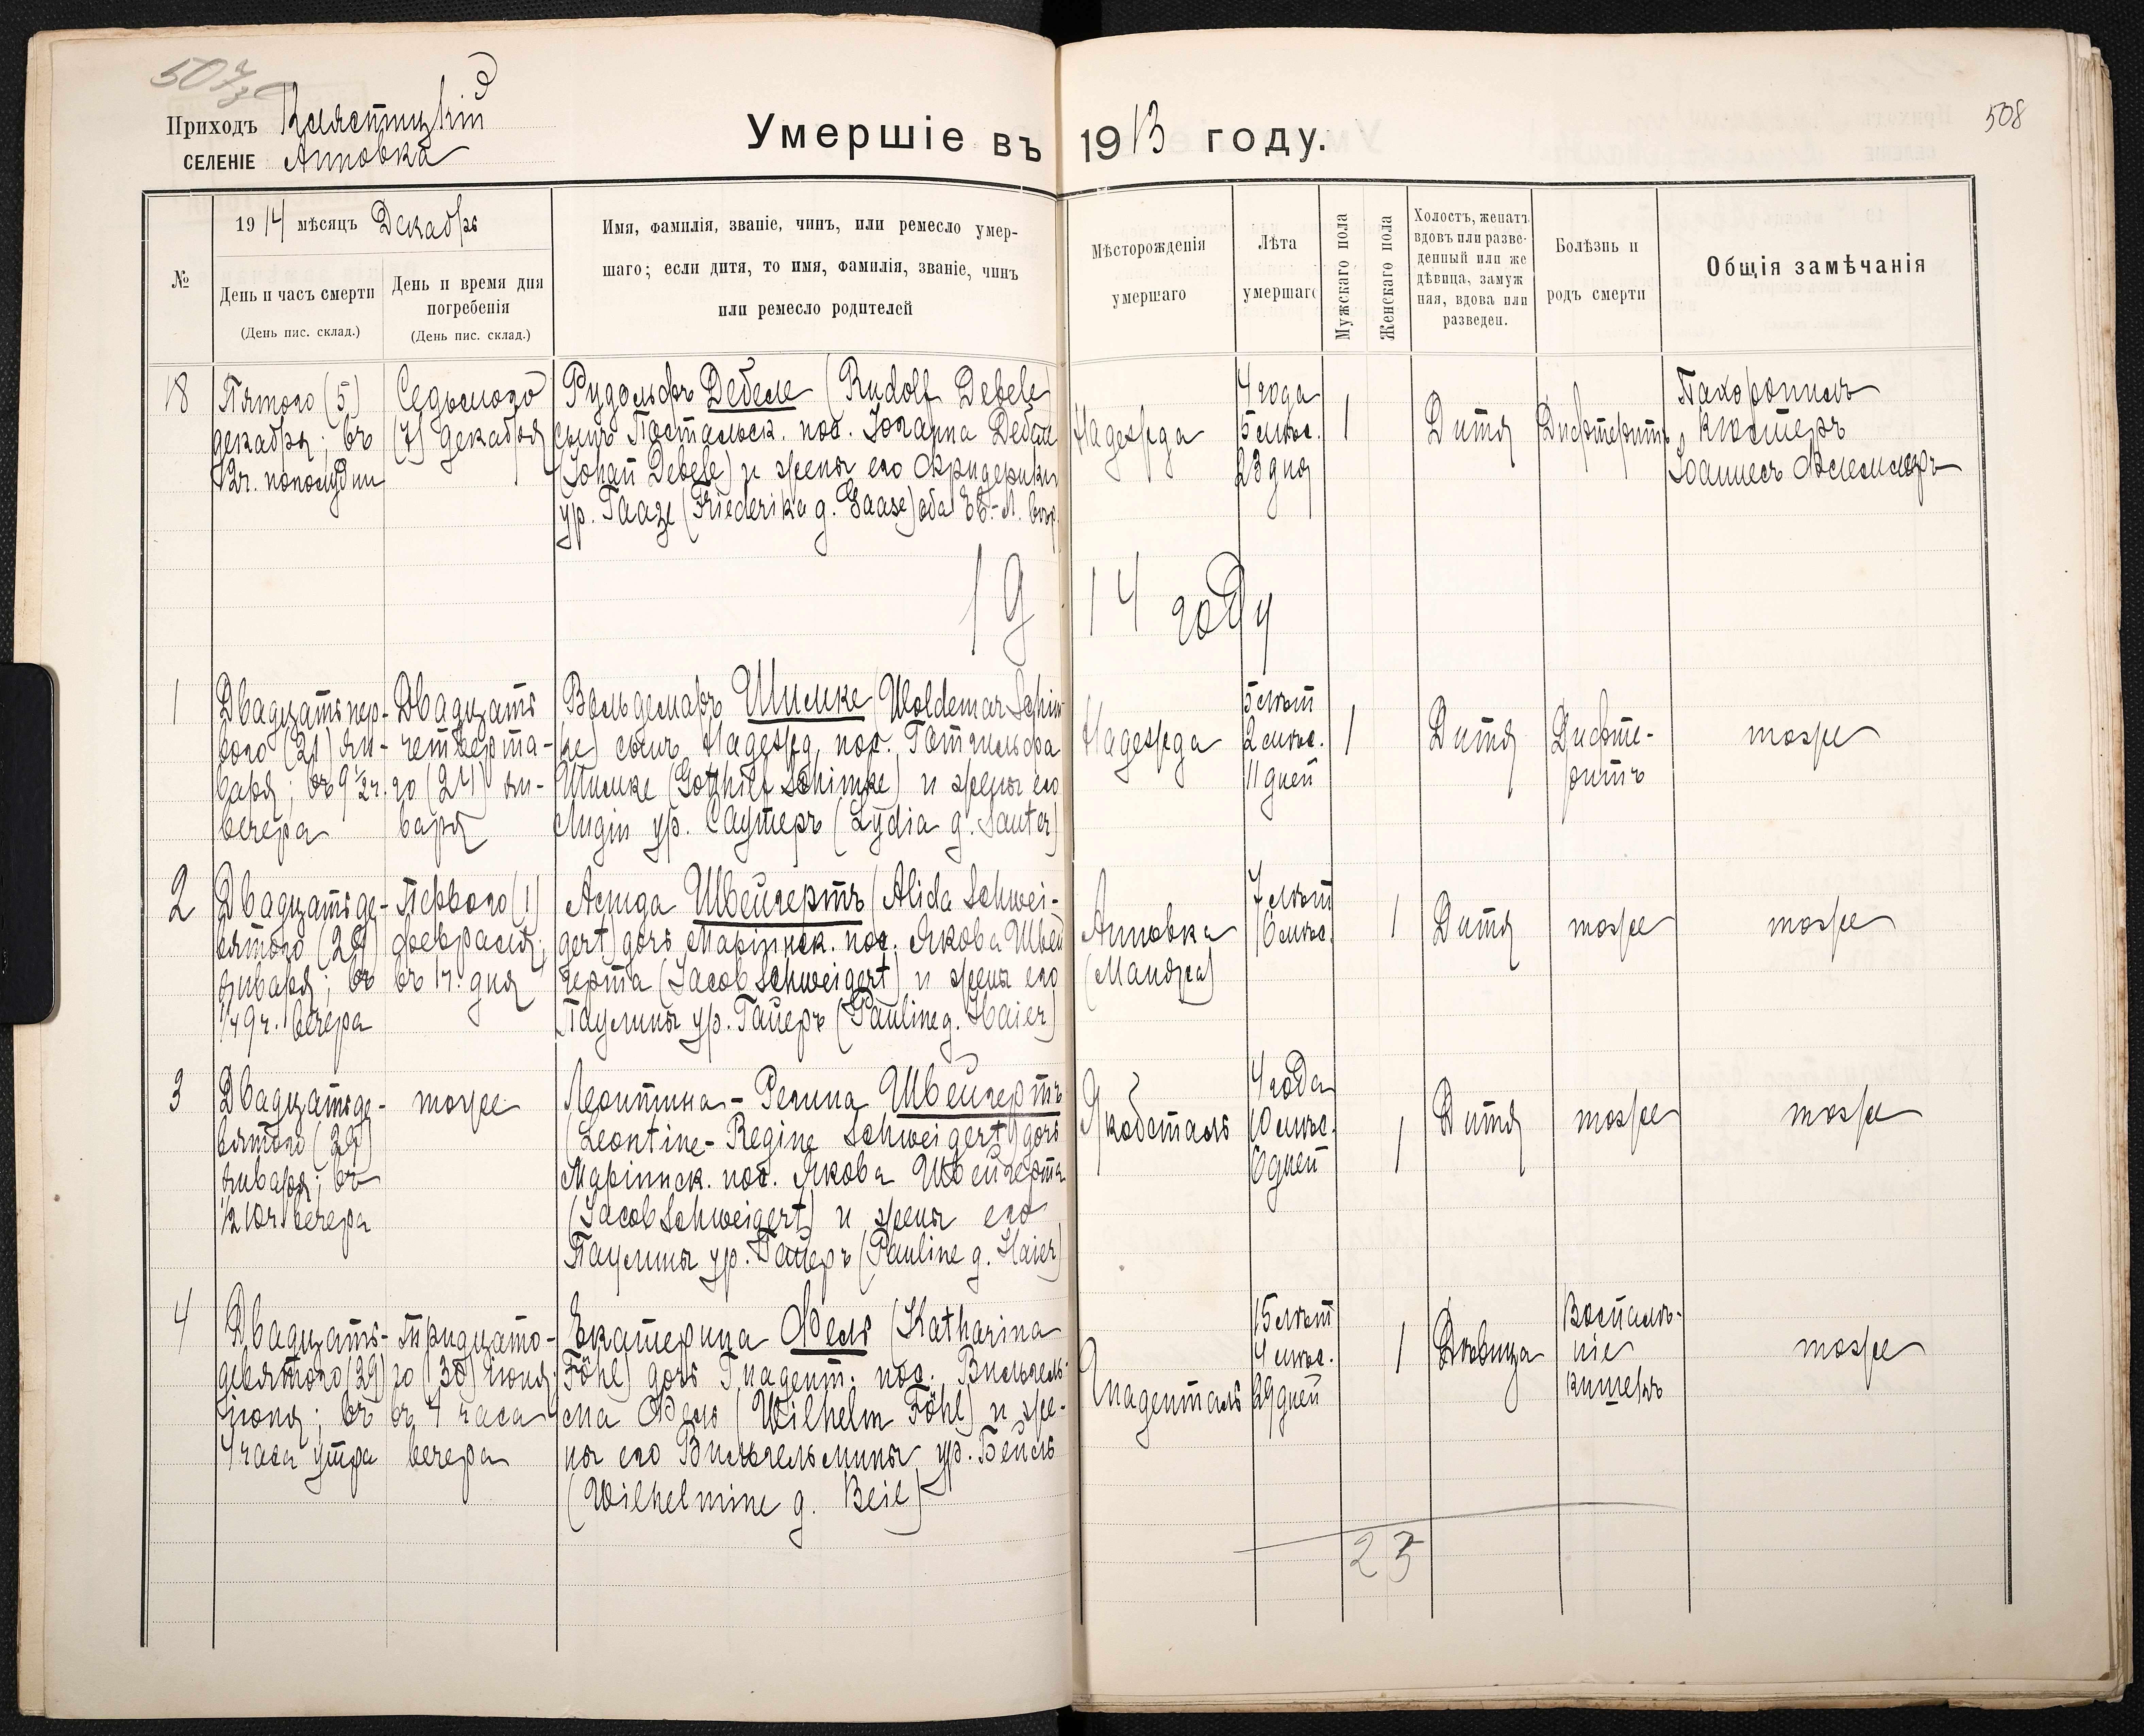 507
508
Приходъ Клястицкій
СЕЛЕНІЕ Анновка
Умершіе въ 1913 году.
№
1914 мѣсяцъ Декабрь
День и часъ смерти
(День пис. склад.)
День и время дня
погребенія
(День пис. склад.)
Имя, фамилія, званіе, чинъ, или ремесло умер-
шаго; если дитя, то имя, фамилія, званіе, чинъ
или ремесло родителей
Мѣсторожденія
умершаго
Лѣта
умершаго
Мужскаго пола
Женскаго пола
Холостъ, женатъ
вдовъ или разве-
денный или же
дѣвица, замуж
няя, вдова или
разведен.
Болѣзнь и
родъ смерти
Общія замѣчанія
18
Пятого (5)
декабря; въ
12ч. пополудни
Седьмого
(7) декабря
Рудольфъ Дебеле (Rudolf Debele)
сынъ Постальск. пос. Іоганна Дебеле
(Johan Debele) и жены его Фридерики
ур. Гаазе (Friederika g. Gaase) оба Ев.-Л. вѣр.
Надежда
4 года
5 мѣс.
23 дня
1
Дитя
Дифтеритъ
Похоронилъ
кюстеръ
Іоаннесъ
1914 году
1
Двадцать пер-
вого (21) ян-
варя; въ 9 1/2ч.
вечера
Двадцать
четверта-
го (24) ян-
варя
Вольдемаръ Шимке (Woldemar Schim-
ke) сынъ Надежд. пос. Готгильфа
Шимке (Gotthilf Schimke) и жены его
Лидіи ур. Саутеръ (Lydia g. Sauter)
Надежда
5 лѣтъ
2 мѣс.
11 дней
1
Дитя
Дифте-
ритъ
тоже
2
Двадцать де-
вятого (29)
января; въ
1/4 9ч. вечера
Первого (1)
февраля;
въ 1ч. дня
Алида Швейгертъ (Alida Schwei-
gert) дочь Маріинск. пос. Якова Швей
герта (Jacob Schweigert) и жены его
Паулины ур. Гайеръ (Pauline g. Haier)
Анновка
(Мандра)
7 лѣтъ
6 мѣс.
1
Дитя
тоже
тоже
3
Двадцать де-
вятого (29)
января; въ
1/2 10ч. вечера
тоже
Леонтина-Регина Швейгертъ
(Leontine-Regine Schweigert) дочь
Маріинск. пос. Якова Швейгерта
(Jacob Schweigert) и жены его
Паулины ур. Гайеръ (Pauline g. Haier)
Якобсталь
4 года
10 мѣс.
6 дней
1
Дитя
тоже
тоже
4
Двадцать-
девятого (29)
іюня; въ
4 часа утра
Тридцато-
го (30) іюня
въ 4 часа
вечера
Екатерина Фель (Katharina
Föhl) дочь Гнадент. пос. Вильгель-
ма Фель (Wilhelm Föhl) и же-
ны его Вильгельмины ур. Бейль
(Wilhelmine g. Beil)
Гнаденталь
15 лѣтъ
4 мѣс.
29 дней
1
Дѣвица
Воспале-
ніе
кишекъ
тоже
2 3